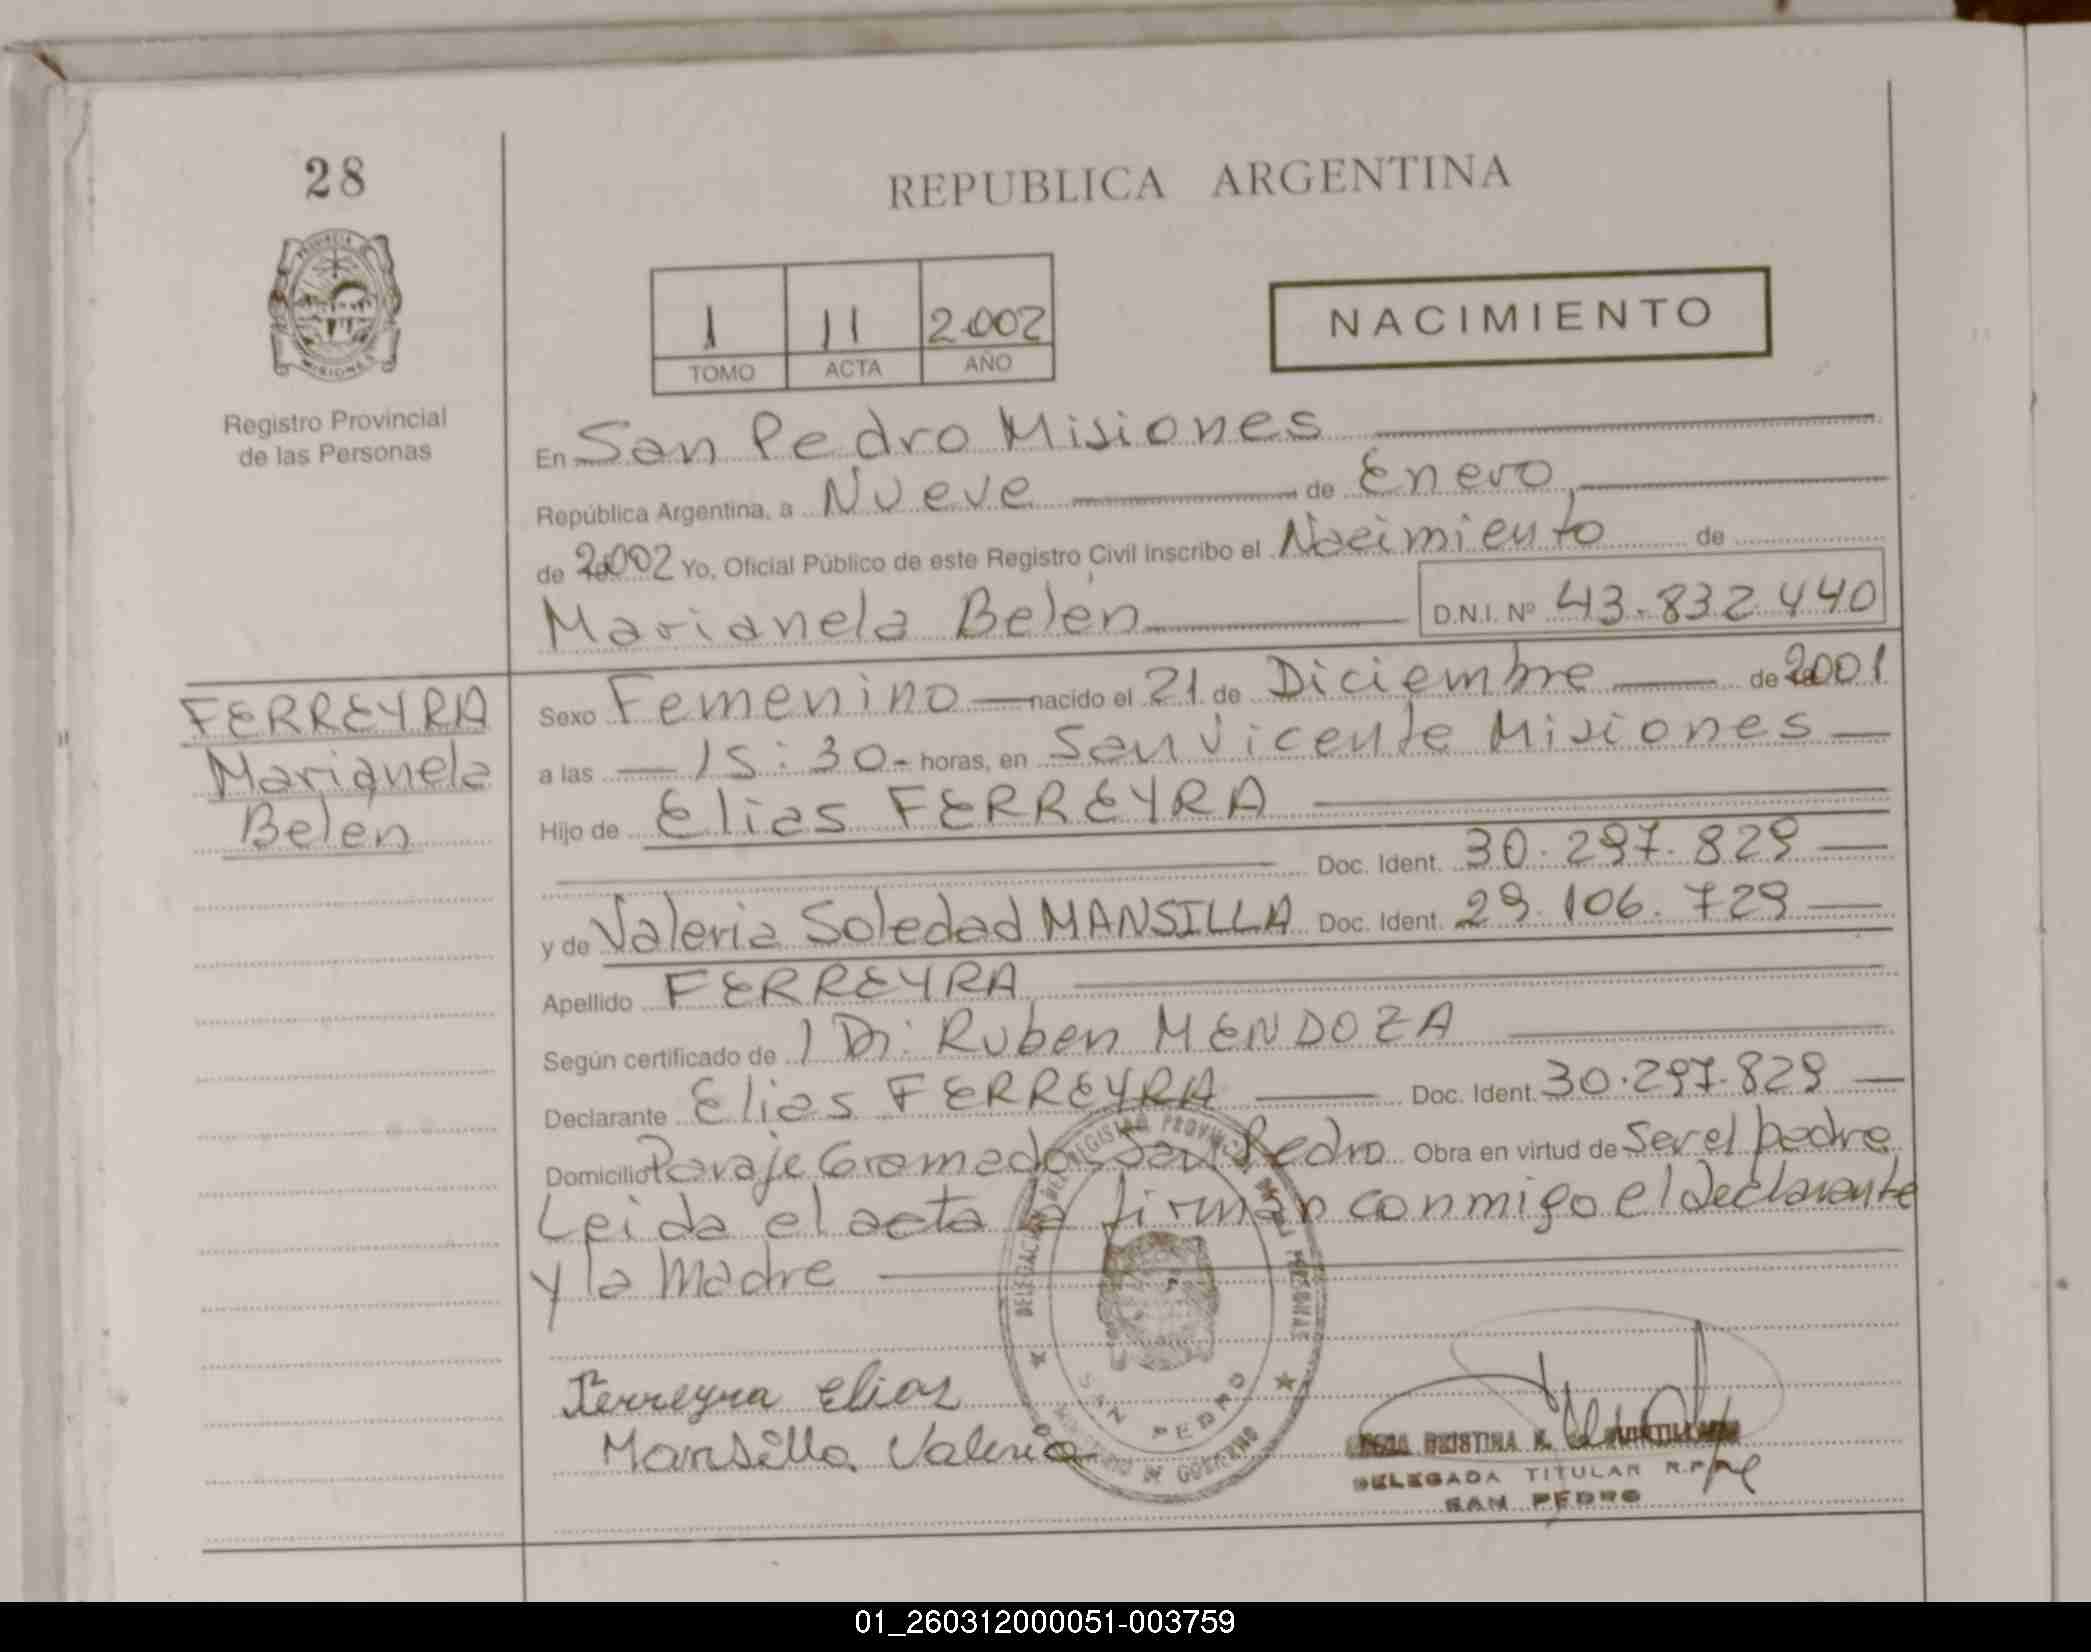 28
REPUBLICA ARGENTINA
PROVINCIA DE MISIONES
1 11 2.002
TOMO ACTA AÑO
NACIMIENTO
Registro Provincial
de las Personas
En San Pedro Misiones
República Argentina, a Nueve de Enero,
de 2.002 Yo, Oficial Público de este Registro Civil inscribo el Nacimiento de
Marianela Belén D.N.I. Nº 43.832.440
FERREYRA
Marianela
Belén
Sexo Femenino nacido el 21 de Diciembre de 2001
a las 15:30.- horas, en San Vicente Misiones
Hijo de Elias FERREYRA
Doc. Ident. 30.297.829
y de Valeria Soledad MANSILLA Doc. Ident. 29.106.729
Apellido FERREYRA
Según certificado de Dr: Ruben MENDOZA
Declarante Elias FERREYRA Doc. Ident. 30.297.829
Domicilio Paraje Gramado, San Pedro Obra en virtud de Ser el padre
Leida el acta la firman conmigo el declarante
y la Madre
DELEGACION DEL REGISTRO PROVINCIAL DE LAS PERSONAS
SAN PEDRO
MINISTERIO DE GOBIERNO
Ferreyra Elias
Mansilla Valeria
CRISTINA
DELEGADA TITULAR R.P.
SAN PEDRO
01_260312000051-003759